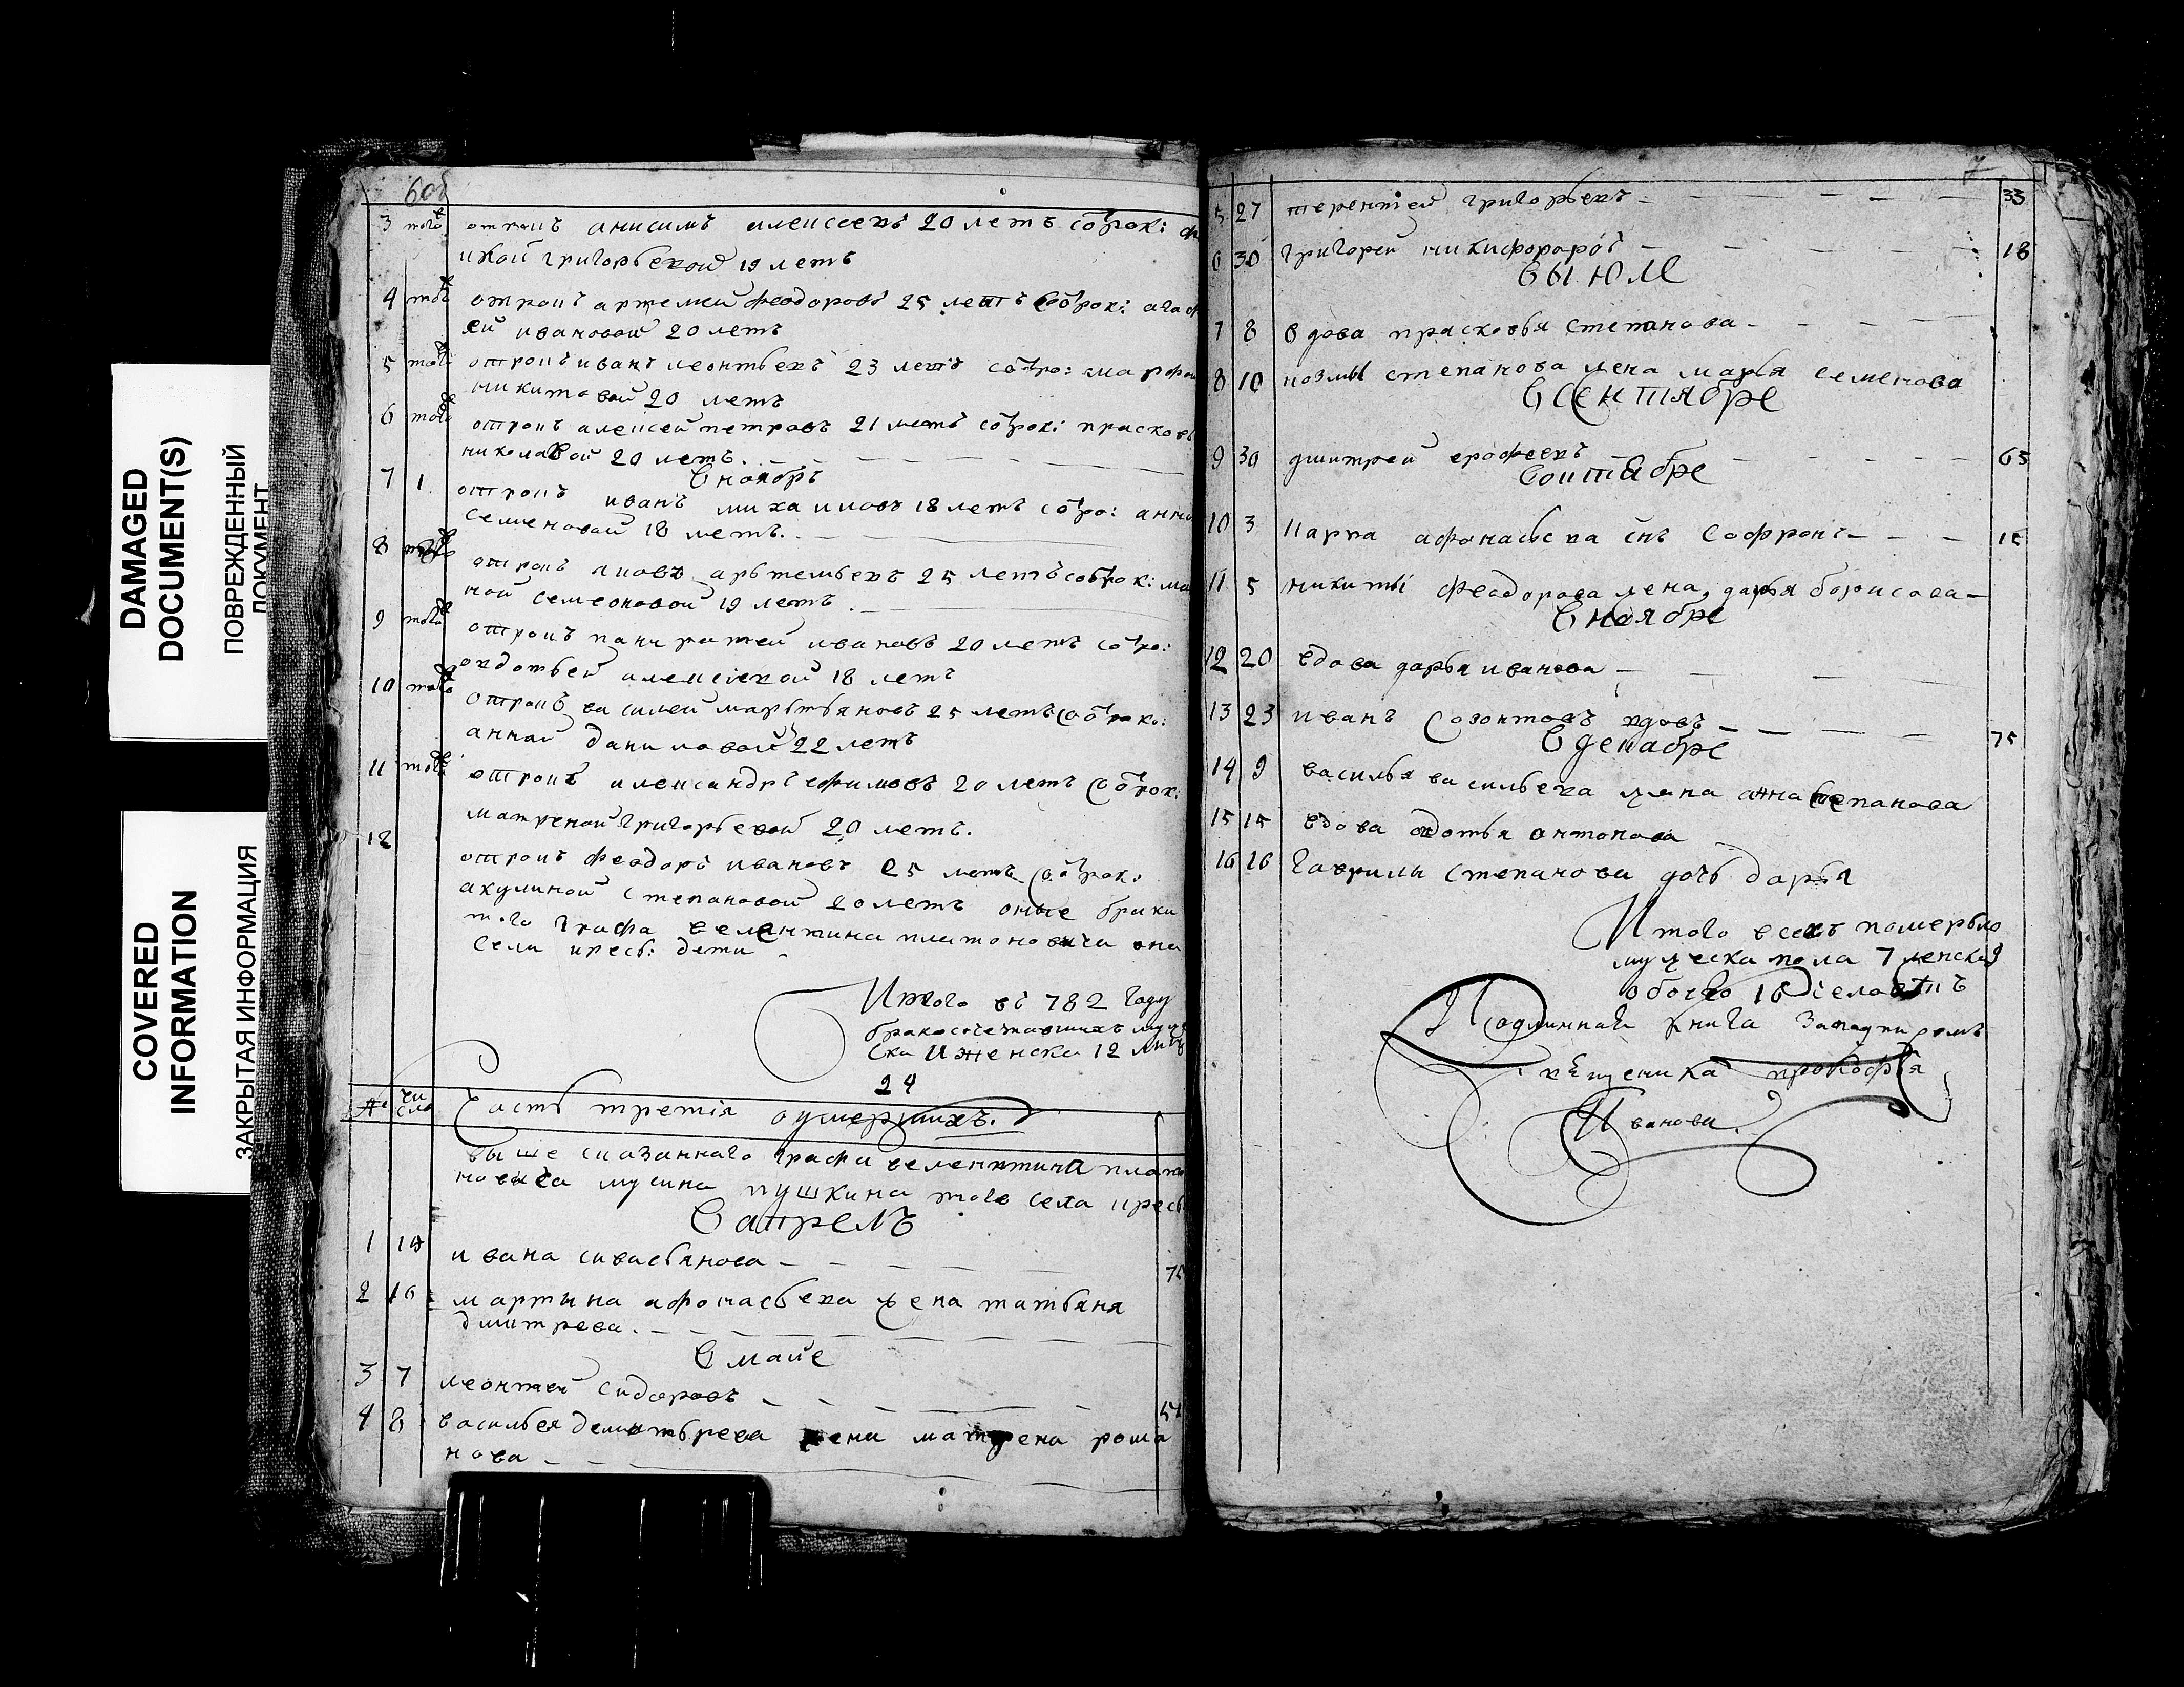 DAMAGED
DOCUMENT(S)
ПОВРЕЖДЕННЫЙ
ДОКУМЕНТ
COVERED
INFORMATION
ЗАКРЫТАЯ ИНФОРМАЦИЯ
3 того отрокъ анисимъ алексеевъ 20 летъ сотрок:
григорьевой 19 летъ
4 того отрокъ артемей феодоровъ 25 летъ сотрок: агаф
еи ивановой 20 летъ
5 того отрокъ иванъ леонтьевъ 23 летъ сотро:
никитовой 20 летъ
6 того отрокъ алексей петровъ 21 летъ сотрок: прасковь
николавой 20 летъ.
В ноябрѣ
7 1 отрокъ иванъ михаиловъ 18 летъ сотро: анно
семеновой 18 летъ.
8 отрокъ иовъ артемьевъ 25 летъ сотрок:
ной семеоновой 19 летъ
9 того отрокъ панкратей ивановъ 20 летъ сотро:
овдотьей алексѣевой 18 летъ
10 того отрокъ василей мартьяновъ 25 летъ сотрок:
анной даниловой 22 летъ
11 того отрокъ александръ ефимовъ 20 летъ сотрок:
матреной григорьевой 20 летъ.
12 отрокъ феодоръ ивановъ 25 летъ сотрок:
акулиной степановой 20 летъ оные браки
того графа велентина платоновича она
села кресь: дети
Итого въ 782 году
бракосочетавшихъ муже
ска и женска 12
24
№ чи
сло Часть третія о умершихъ.
выше сказаннаго графа велентина плато
новича мусина пушкина того села кресь
В апрелѣ
1 14 ивана сивастьянова 75
2 16 мартына афонасьева жена татьяна
дмитрева.
В маие
3 7 леонтей сидоровъ
4 8 василья дементьрева жена матрена рома
нова
7
5 27 терентей григорьевъ 33
6 30 григорей никифоровъ 18
В ыюле
7 8 вдова прасковья степанова
8 10 козмы степанова жена марья семенова
В сентябре
9 30 дмитрей ерофеевъ 65
В октябре
10 3 карпа афонасьева снъ софронъ
11 5 никиты феодорова жена дарья борисова
В ноябре
12 20 вдова дарья иванова
13 23 иванъ созонтовъ вдовъ 75
В декабре
14 9 василья васильева жена анна степанова
15 15 вдова овдотья антонова
16 16 гаврилы степанова дочь дарья
Итого всехъ померьло
мужеска пола 7 женска 9
обоего 16
Подлинная книга
священика прокофья
Иванова.